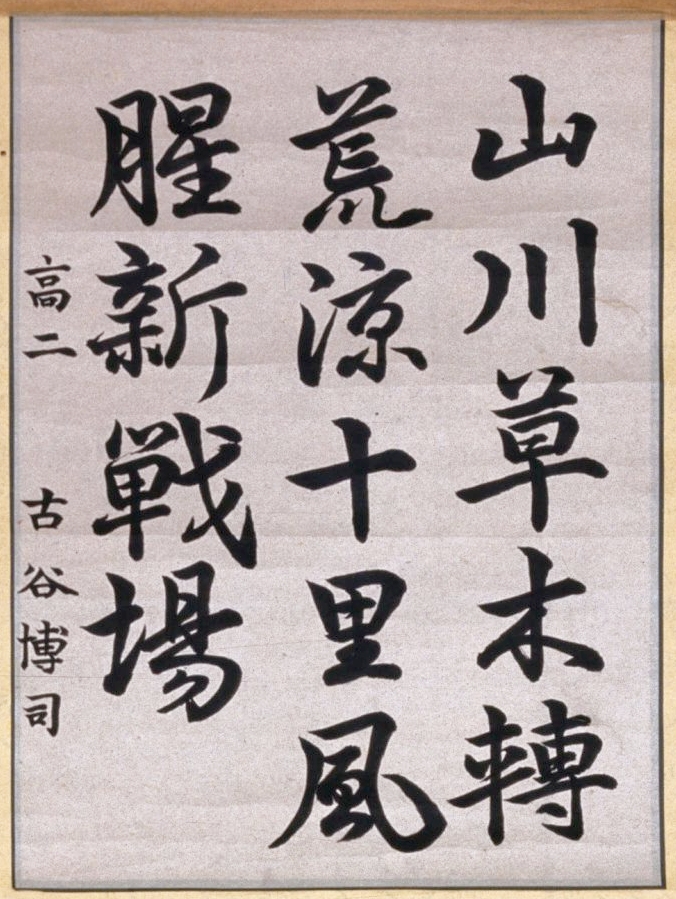 山川草木轉
荒涼十里風
腥新戦場
高二 古谷博司